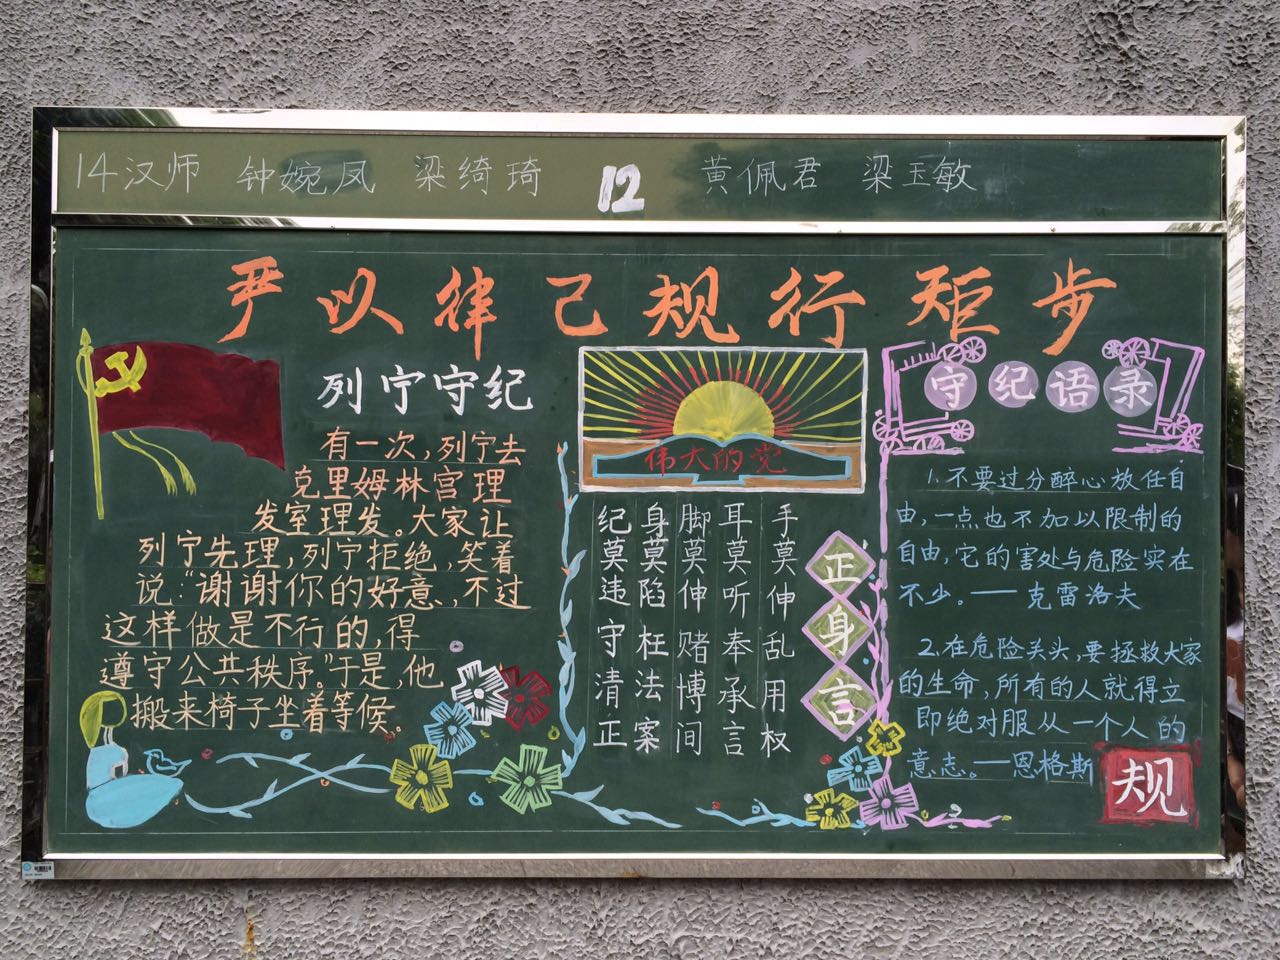 14汉师 钟婉凤 梁绮琦 12 黄佩君 梁玉敏
严以律己规行矩步
列宁守纪
有一次,列宁去
克里姆林宫理
发室理发。大家让
列宁先理,列宁拒绝,笑着
说:“谢谢你的好意,不过
这样做是不行的,得
遵守公共秩序。”于是,他
搬来椅子坐着等候。
伟大的党
手莫伸乱用权
耳莫听奉承言
脚莫伸赌博间
身莫陷枉法案
纪莫违守清正
正身言
守纪语录
1.不要过分醉心放任自
由,一点也不加以限制的
自由,它的害处与危险实在
不少。——克雷洛夫
2.在危险关头,要拯救大家
的生命,所有的人就得立
即绝对服从一个人的
意志。——恩格斯
规